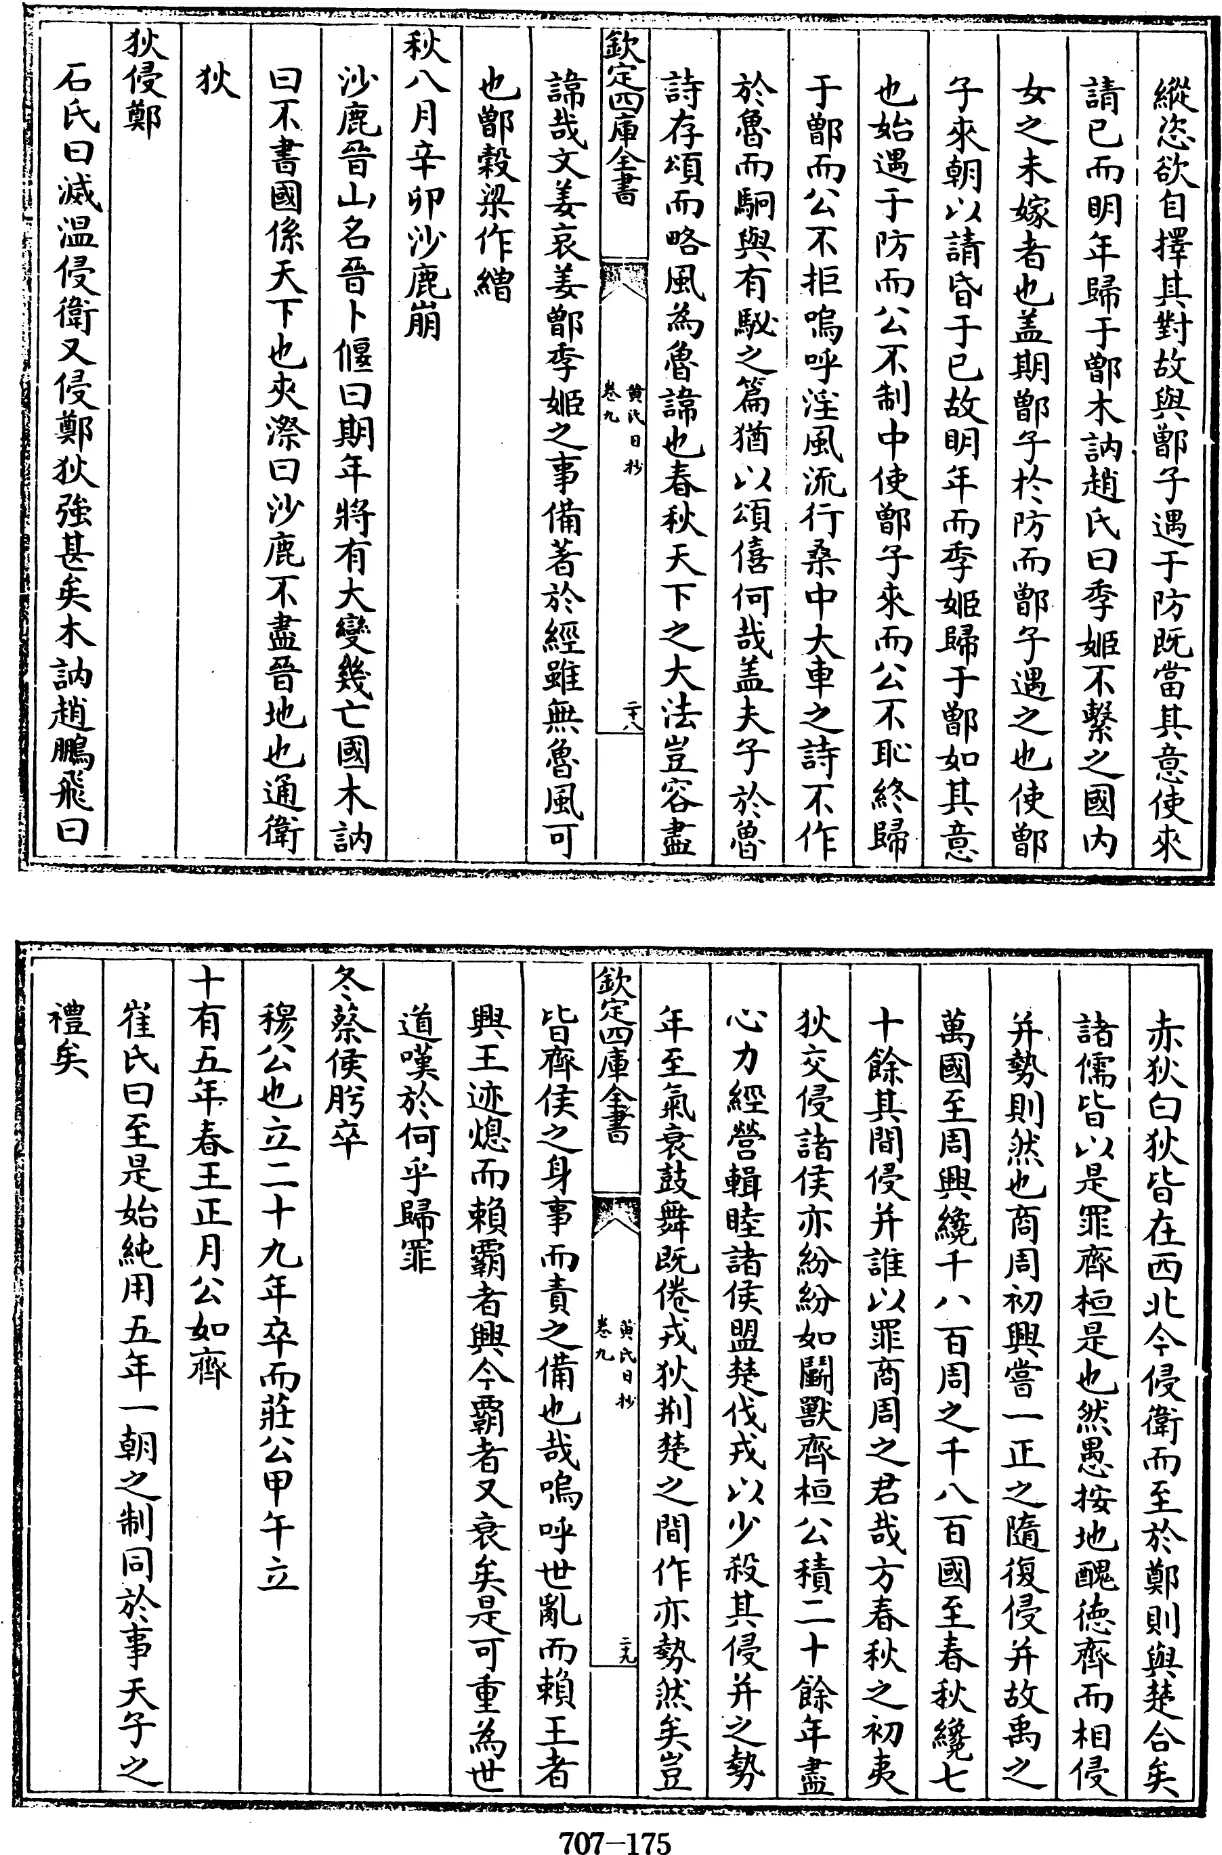 縱恣欲自擇其對故與鄫子遇于防既當其意使來
請已而明年歸于鄫木訥趙氏曰季姬不繫之國内
女之未嫁者也盖期鄫子於防而鄫子遇之也使鄫
子來朝以請昏于已故明年而季姬歸于鄫如其意
也始遇于防而公不制中使鄫子來而公不恥終歸
于鄫而公不拒嗚呼淫風流行桑中大車之詩不作
於魯而駉與有駜之篇猶以頌僖何哉盖夫子於魯
詩存頌而略風為魯諱也春秋天下之大法豈容盡
欽定四庫全書
黄氏日抄
卷九
二十八
諱哉文姜哀姜鄫季姬之事備著於經雖無魯風可
也鄫榖梁作繒
秋八月辛卯沙鹿崩
沙鹿晉山名晉卜偃曰期年將有大變幾亡國木訥
曰不書國係天下也夾漈曰沙鹿不盡晉地也通衛
狄
狄侵鄭
石氏曰滅溫侵衛又侵鄭狄強甚矣木訥趙鵬飛曰
赤狄白狄皆在西北今侵衛而至於鄭則與楚合矣
諸儒皆以是罪齊桓是也然愚按地醜徳齊而相侵
并勢則然也商周初興嘗一正之隨復侵并故禹之
萬國至周興纔千八百周之千八百國至春秋纔七
十餘其間侵并誰以罪商周之君哉方春秋之初夷
狄交侵諸侯亦紛紛如鬭獸齊桓公積二十餘年盡
心力經營輯睦諸侯盟楚伐戎以少殺其侵并之勢
年至氣衰鼓舞既倦戎狄荆楚之間作亦勢然矣豈
欽定四庫全書
黄氏日抄
卷九
二十九
皆齊侯之身事而責之備也哉嗚呼世亂而賴王者
興王迹熄而賴霸者興今霸者又衰矣是可重為世
道嘆於何乎歸罪
冬蔡侯肹卒
穆公也立二十九年卒而莊公甲午立
十有五年春王正月公如齊
崔氏曰至是始純用五年一朝之制同於事天子之
禮矣
707-175